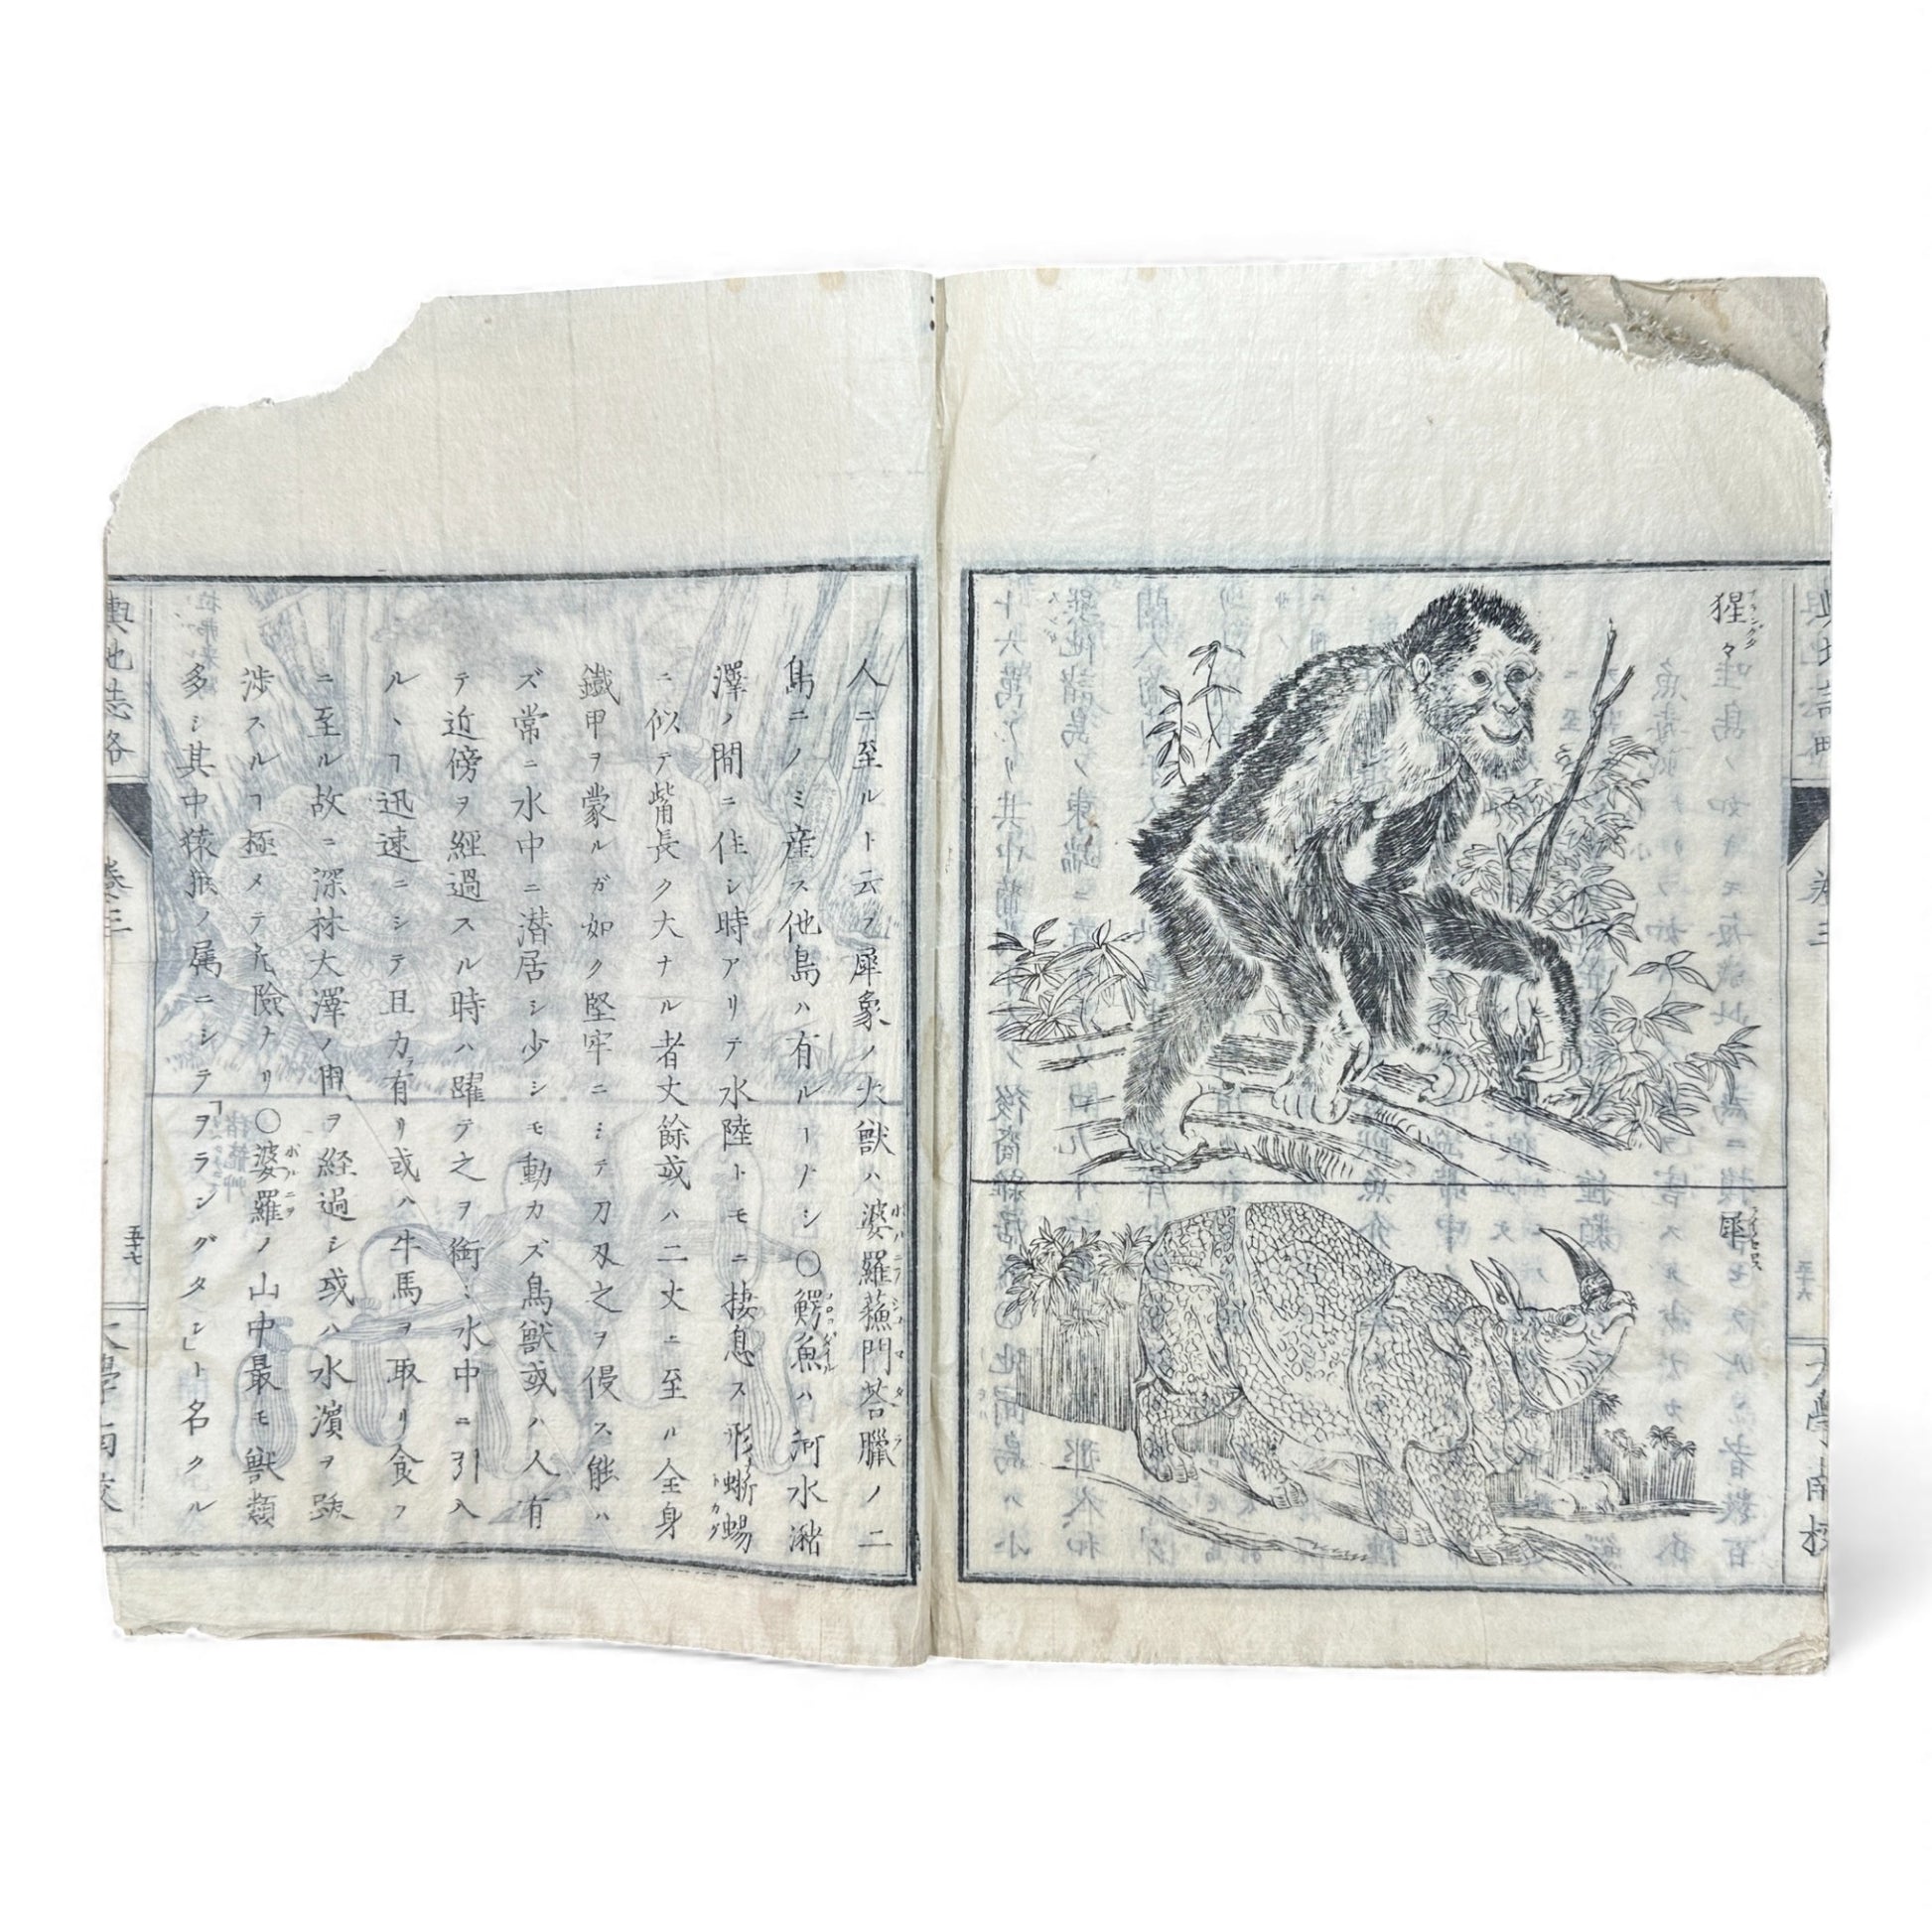 猩々
犀
人ニ至ルト云フ犀象ノ大獣ハ婆羅蘓門荅臘ノ二
島ニノミ産ス他島ハ有ルーナシ〇鰐魚ハ河水瀦
澤ノ間ニ住シ時アリテ水陸トモニ棲息ス形蜥蜴
ニ似テ觜長ク大ナル者丈餘或ハ二丈ニ至ル全身
鐵甲ヲ蒙ルガ如ク堅牢ニシテ刀刄之ヲ侵ス能ハ
ズ常ニ水中ニ潜居シ少シモ動カズ鳥獣或ハ人有
テ近傍ヲ経過スル時ハ躍テ之ヲ銜ミ水中ニ引入
ルヽヿ迅速ニシテ且力有リ或ハ牛馬ヲ取リ食フ
ニ至ル故ニ深林大澤ノ間ヲ経過シ或ハ水濱ヲ
渉スルヿ極メテ危險ナリ〇婆羅ノ山中最モ獣類
多シ其中猿猴ノ属ニシテ「ヲラングタン」ト名クル
輿地誌略
卷三
五十七
大學南校